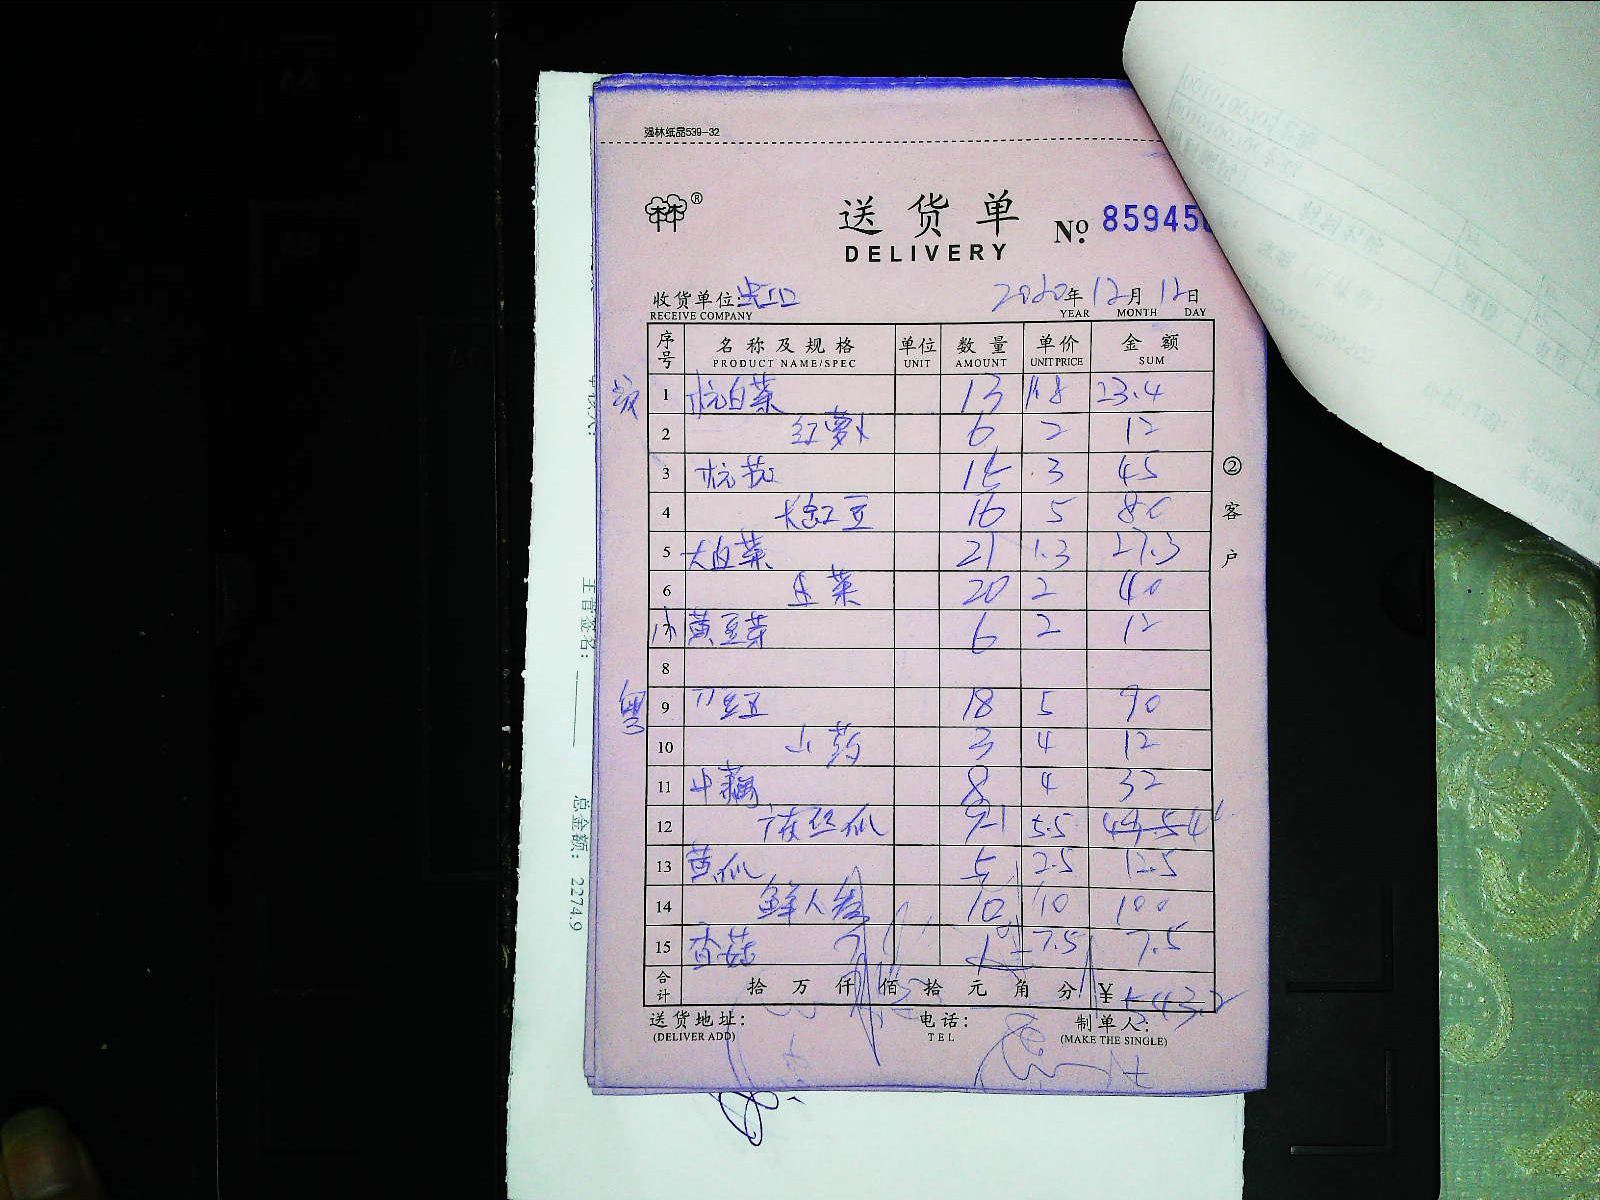 强林纸品539-32
®
送货单
DELIVERY
№ 85945
收货单位: 虹口
RECEIVE COMPANY
2020年 12月 12日
YEAR MONTH DAY
序号 名称及规格 单位 数量 单价 金额
PRODUCT NAME/SPEC UNIT AMOUNT UNIT PRICE SUM
1 杭白菜 13 1.8 23.4
2 红萝卜 6 2 12
3 杭 15 3 45
4 豆 16 5 80
5 大白菜 21 1.3 27.3
6 生菜 20 2 40
7 黄豆芽 6 2 12
8
粤
9 18 5 90
10 山药 3 4 12
11 中藕 8 4 32
12 丝瓜 9-1 5.5 49.5 4
13 黄瓜 5 2.5 12.5
14 鲜人参 10 10 100
15 香菇 1 7.5 7.5
合计 拾 万 仟 佰 拾 元 角 分 ¥ 543.2
送货地址: 电话: 制单人:
(DELIVER ADD) TEL (MAKE THE SINGLE)
② 客户
主管签名:
总金额: 2274.9